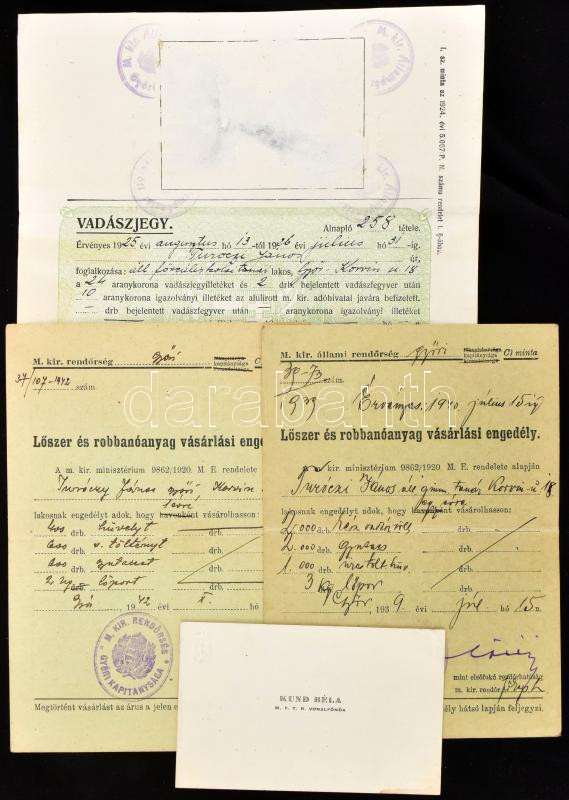 M. kir. Állampé
Győri
I. sz. minta az 1924. évi 5.007 P. M. számu rendelet I. §-ához.
VADÁSZJEGY.
Alnapló 258 tétele.
Érvényes 1925 évi augusztus hó 13-tól 1926 évi julius hó 31-ig.
Turóczi János úr,
foglalkozása: áll. főreáliskolai tanár lakos, Győr- Korvin u 18
a 24 aranykorona vadászjegyilletéket és 2 drb. bejelentett vadászfegyver után
10 aranykorona igazolványi illetéket az alulirott m. kir. adóhivatal javára befizetett.
drb bejelentett vadászfegyver után aranykorona igazolványi illetéket
M. kir. rendőrség győri C)
37/107-1942 szám
Lőszer és robbanóanyag vásárlási enge
A m. kir. minisztérium 9862/1920. M. E. rendelete
Turóczy János győri, Korvin
lakosnak engedélyt adok, hogy havonként vásárolhasson:
400 drb. hüvelyt drb.
600 drb. v. töltényt drb.
600 drb. gyutacsot drb.
2 kg lőport drb.
Győr 1942 évi X. hó
M. KIR. RENDŐRSÉG
GYŐRI KAPITÁNYSÁGA
Megtörtént vásárlást az árus a jelen e
M. kir. állami rendőrség győri kapitánysága C) minta
szám.
939 Érvényes, 1940, július 15ig
Lőszer és robbanóanyag vásárlási engedély.
A m. kir. minisztérium 9862/1920. M. E. rendelete alapján
Turóczi János áll gimn tanár Korvin-u 18
lakosnak engedélyt adok, hogy havonként vásárolhasson:
2.000 drb. drb.
2.000 drb. gyutacs drb.
1.000 drb. drb.
3 kg lőpor drb.
Győr, 1939 évi júl. hó 15 n.
mint elsőfokú rendőrhatóság
m. kir. rendőr
ély hátsó lapján feljegyzi.
KUND BÉLA
M. F. T. R. VONALFŐNÖK
darabanth